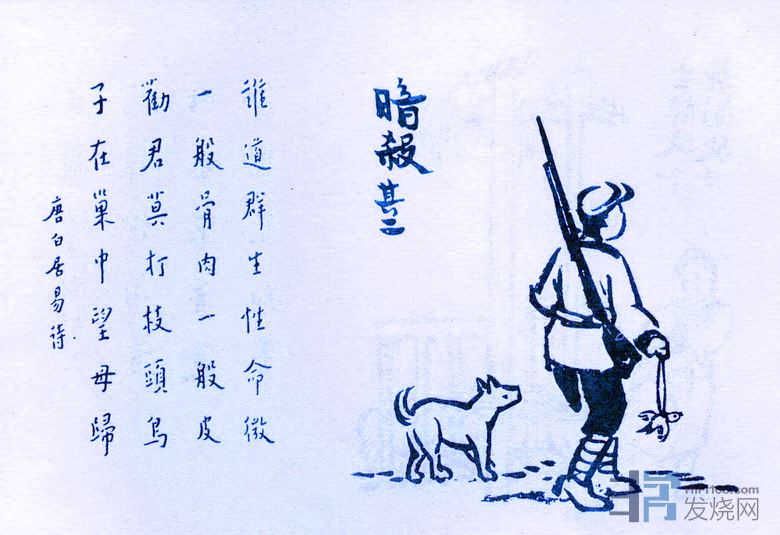 暗殺其二
誰道群生性命微
一般骨肉一般皮
勸君莫打枝頭鳥
子在巢中望母歸
唐白居易詩
发烧网